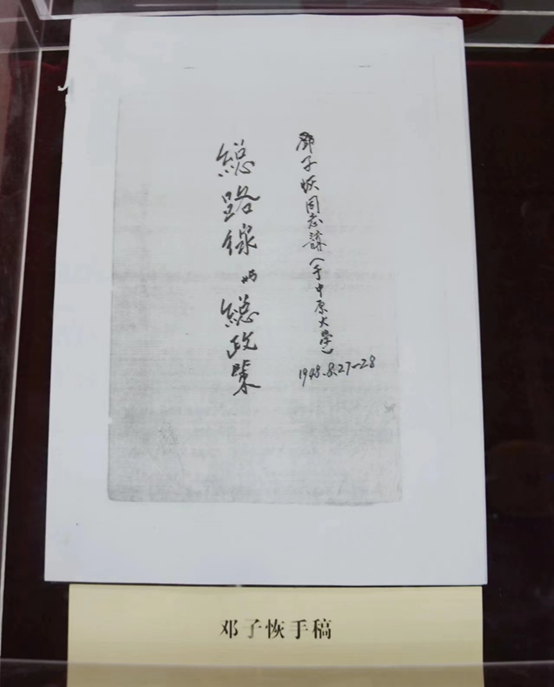 鄧子恢同志講(于中原大學)
1948.8.27—28
總路線与總政策
邓子恢手稿